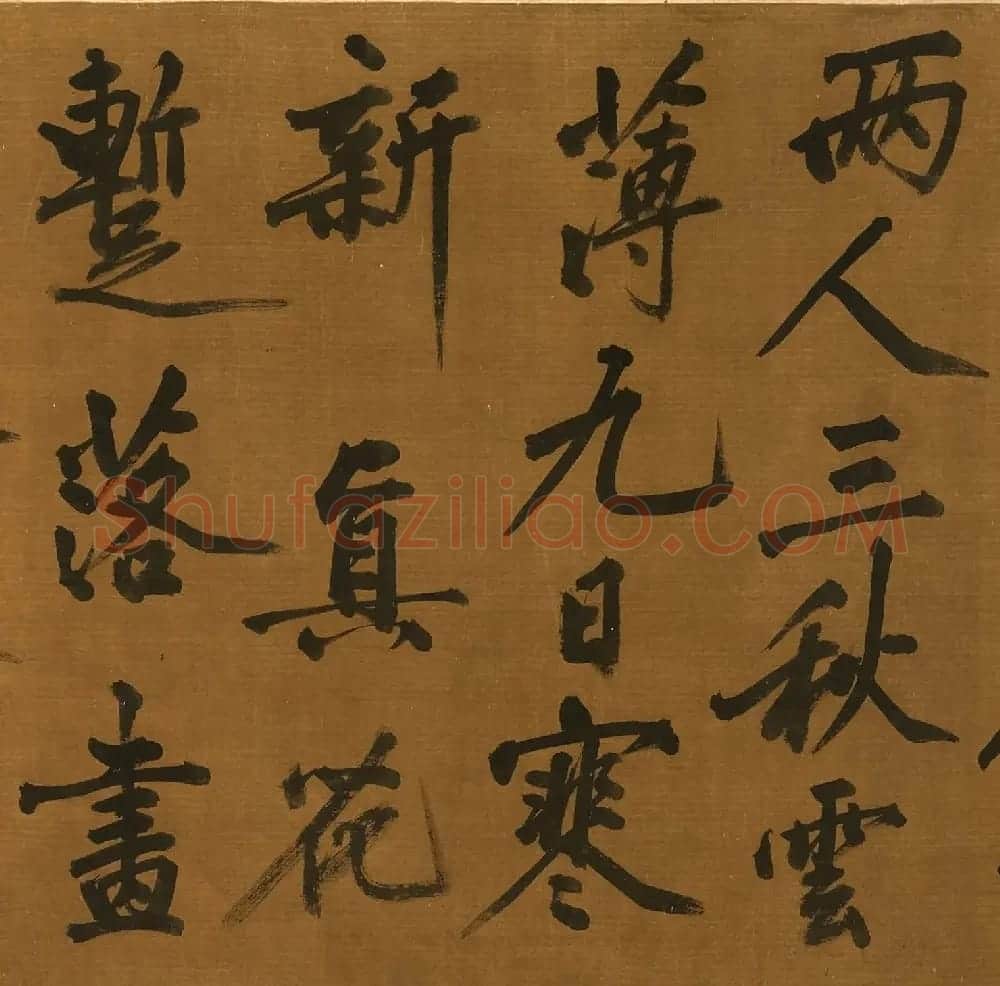 两人三秋雲
薄九日寒
新真花
蹔落畫
Shufaziliao.COM